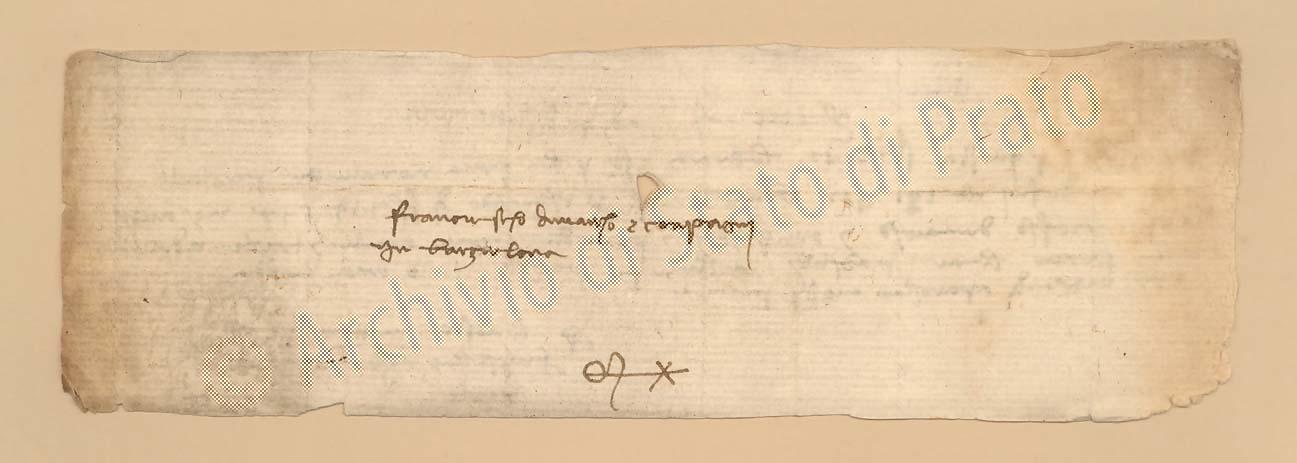 francischo damarcho e conpagni
in barzelona
© Archivio di Stato di Prato